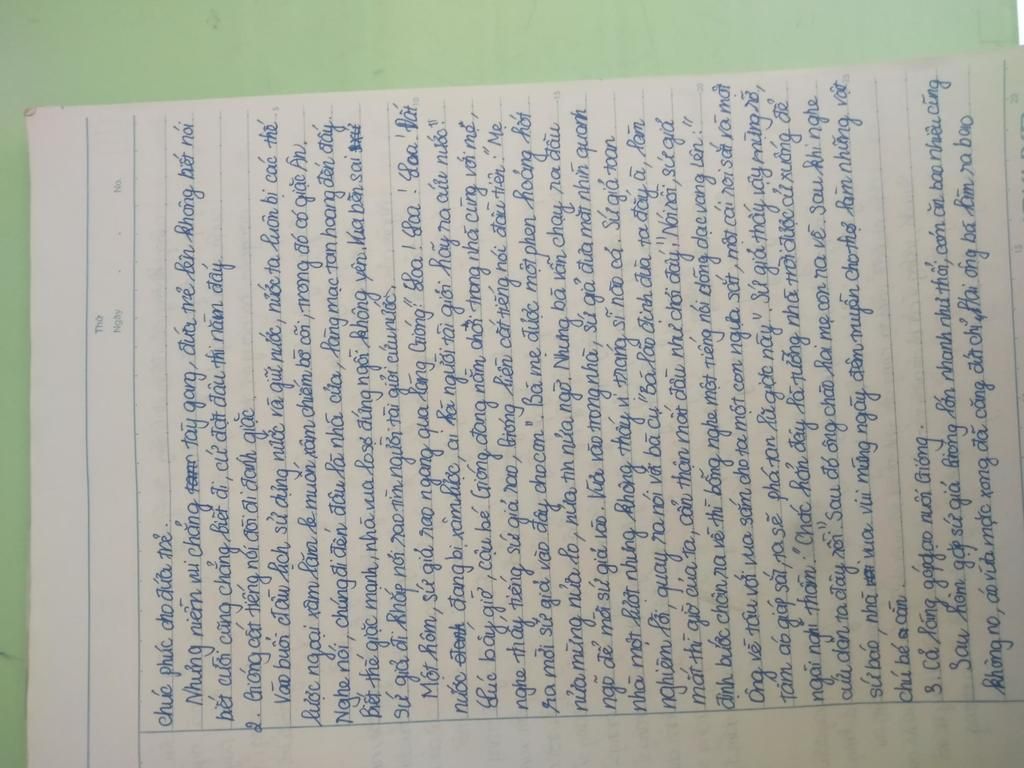 Thứ
Ngày
No.
chúc phúc cho đứa trẻ.
Nhưng niềm vui chẳng tày gang, đứa trẻ lên không biết nói
biết cười cũng chẳng biết đi, cứ đặt đâu thì nằm đấy
2. Gióng cất tiếng nói đòi đi đánh giặc
Vào buổi đầu lịch sử dựng nước và giữ nước, nước ta luôn bị các thế
lực ngoại xâm lăm le muốn xâm chiếm bờ cõi, trong đó có giặc Ân.
Nghe nói, chúng đi đến đâu là nhà cửa, làng mạc tan hoang đến đấy
biết thế giặc mạnh, nhà vua lo sợ đứng ngồi không yên. Vua bèn sai
sứ giả đi khắp nơi rao tìm người tài giỏi cứu nước
Một hôm, sứ giả rao ngang qua làng Gióng "Loa! Loa! Loa! Đất
nước đang bị xâm lược, ai là người tài giỏi hãy ra cứu nước"
Lúc bấy giờ, cậu bé Gióng đang nằm chơi trong nhà cùng với mẹ,
nghe thấy tiếng sứ giả rao Gióng liền cất tiếng nói đầu tiên: "Mẹ
ra mời sứ giả vào đây cho con". Bà mẹ được một phen hoảng hốt
nửa mừng nửa lo, nửa tin nửa ngờ. Nhưng bà vẫn chạy ra đầu
ngõ để mời sứ giả vào. Vừa vào trong nhà, sứ giả đưa mắt nhìn quanh
nhà một lượt nhưng không thấy vị tráng sĩ nào cả. Sứ giả toan
nghiêm lời, quay ra nói với bà cụ "Bà lão đích đùa ta đấy à, làm
mất thì giờ của ta, cẩn thận mất đầu như chơi đấy!" Nói rồi, sứ giả
định bước chân ra về thì bỗng nghe một tiếng nói dõng dạc vang lên: "
Ông về tâu với vua sắm cho ta một con ngựa sắt, một cái roi sắt và một
tấm áo giáp sắt, ta sẽ phá tan lũ giặc này". Sứ giả thấy mừng rỡ,
ngài nghĩ thầm: "Chắc hẳn đây là tướng nhà trời được cử xuống để
cứu dân ta đây rồi". Sau đó ông chào hai mẹ con ra về. Sau khi nghe
sứ báo nhà vua vui mừng ngày đêm muốn cho thợ làm những vật
chú bé cần
3. Cả làng góp gạo nuôi Gióng.
Sau hôm gặp sứ giả Gióng lớn nhanh như thổi, cơm ăn bao nhiêu cũng
không no, áo vừa mặc xong đã căng đứt chỉ. Hai ông bà làm ra bao